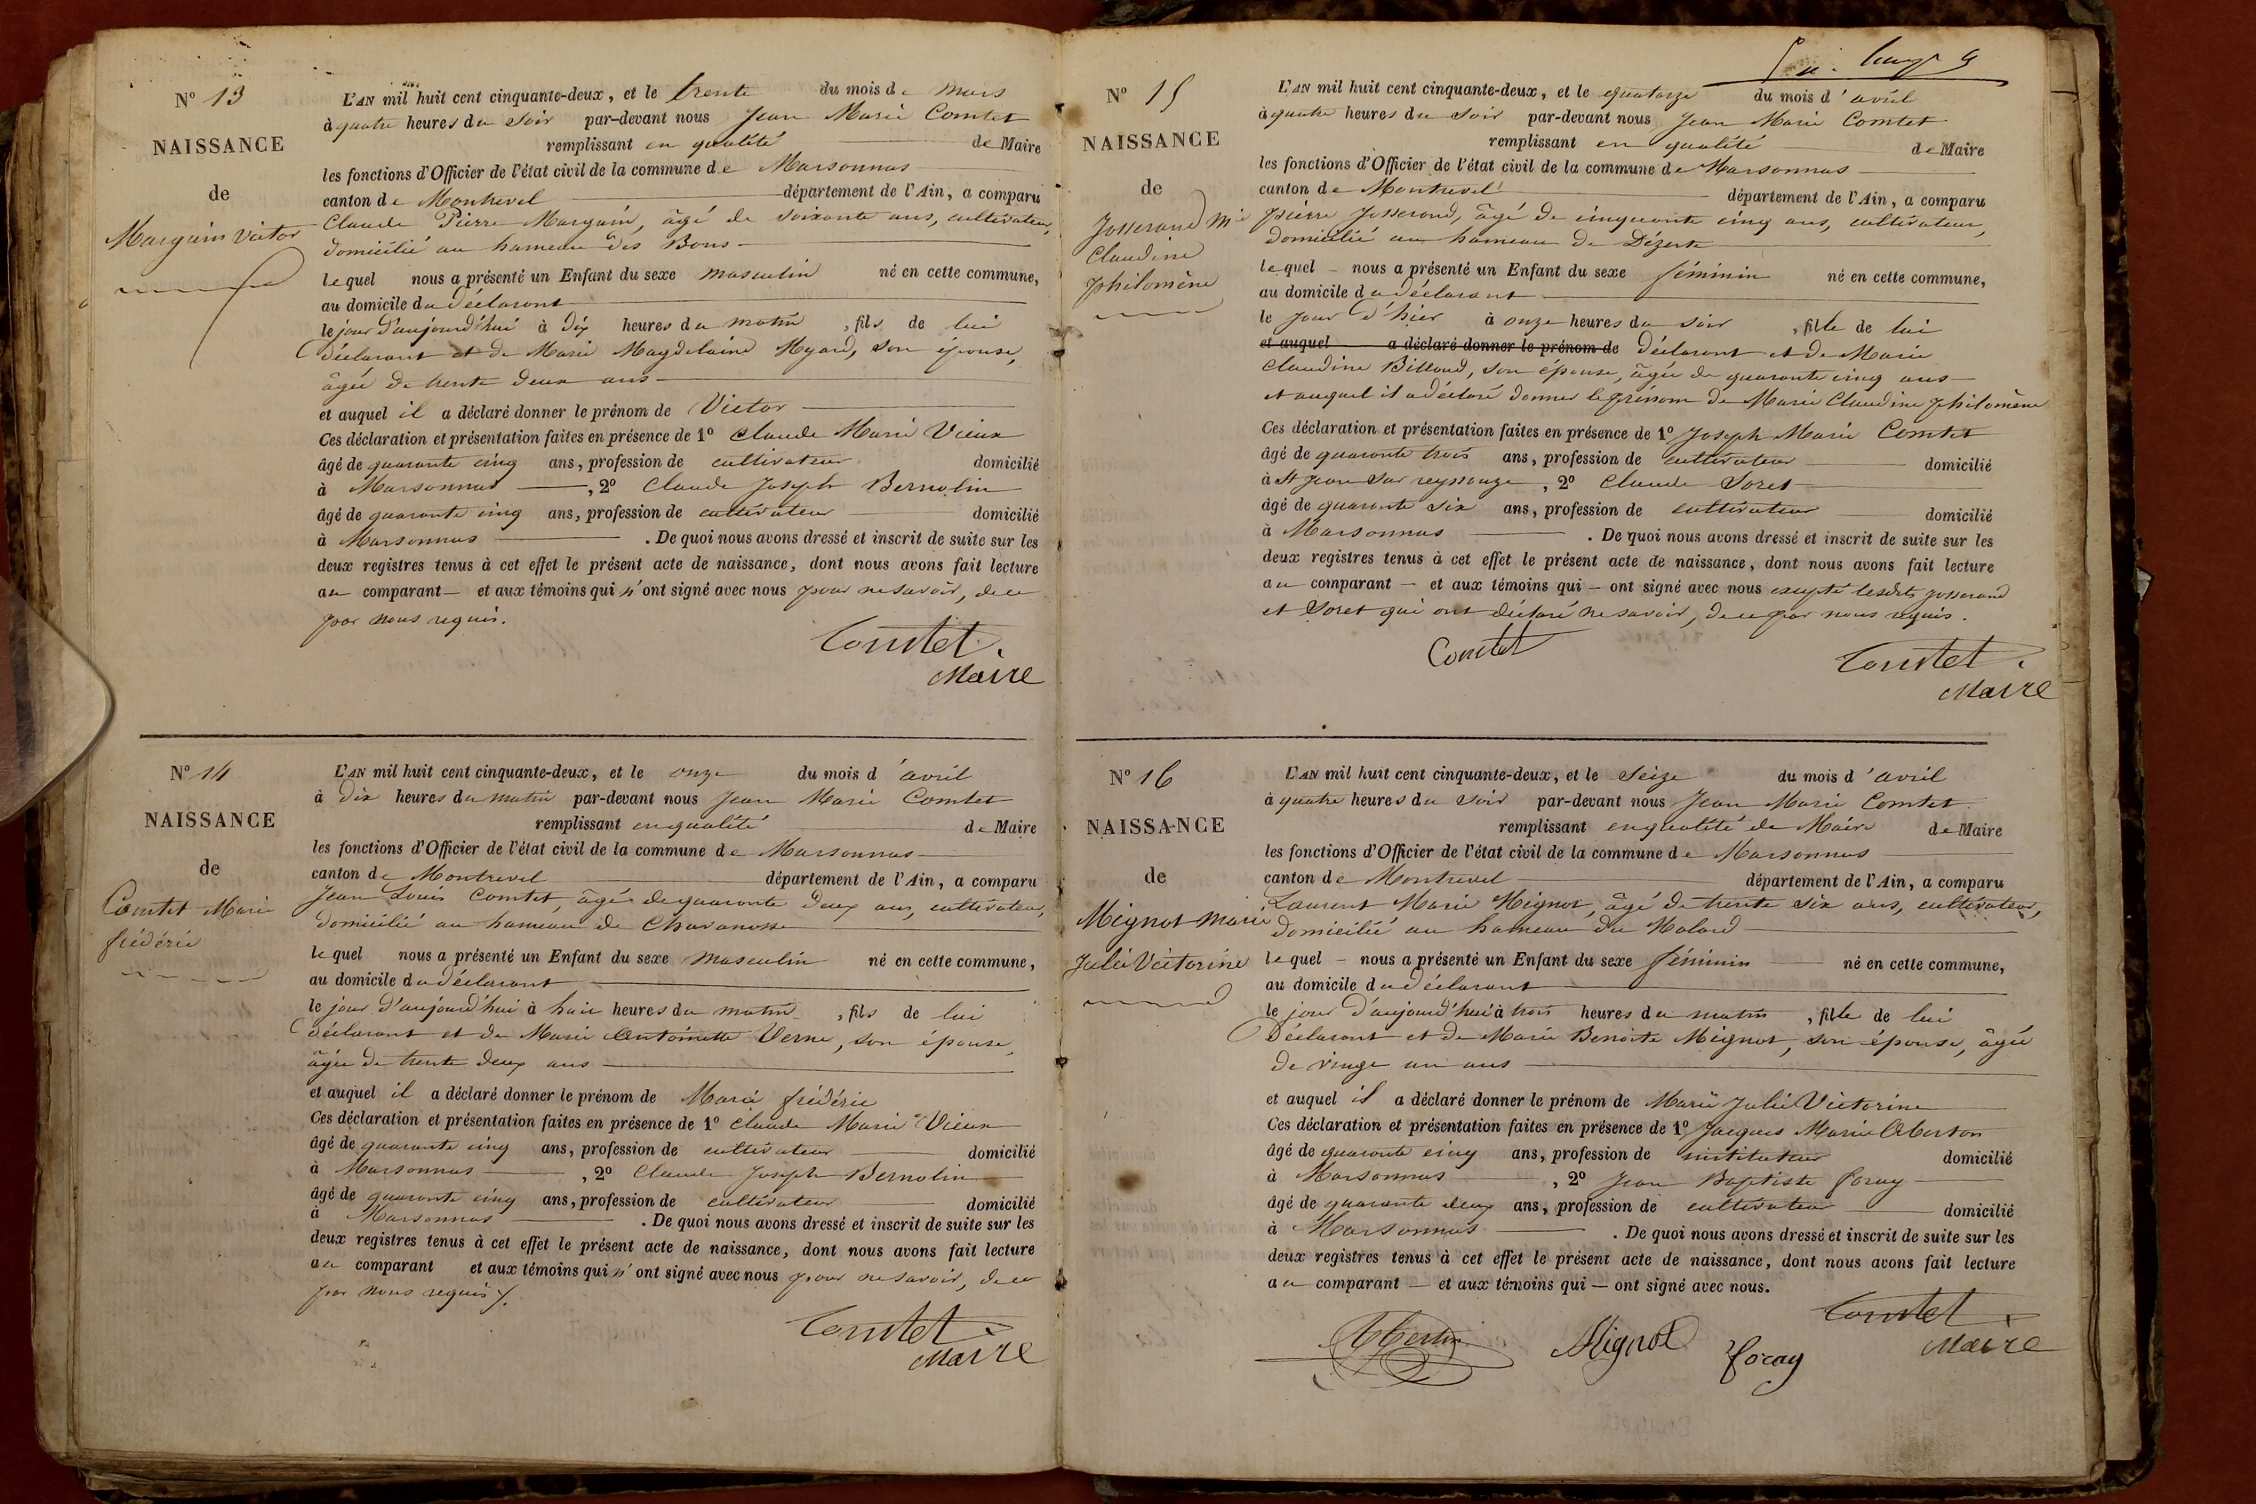 N° 13
NAISSANCE
de
Marguin Victor
L'AN mil huit cent cinquante-deux, et le trente du mois de mars
à quatre heures du soir par-devant nous Jean Marie Comtet
remplissant en qualité de Maire
les fonctions d'Officier de l'état civil de la commune de Marsonnas
canton de Montrevel département de l'Ain, a comparu
Claude Pierre Marguin, âgé de soixante ans, cultivateur,
domicilié au hameau des Bons
lequel nous a présenté un Enfant du sexe masculin né en cette commune,
au domicile du déclarant
le jour d'aujourd'hui à dix heures du matin, fils de lui
déclarant et de Marie Magdelaine Myard, son épouse,
âgée de trente deux ans
et auquel il a déclaré donner le prénom de Victor
Ces déclaration et présentation faites en présence de 1° Claude Marie Vieux
âgé de quarante cinq ans, profession de cultivateur domicilié
à Marsonnas, 2° Claude Joseph Bernolin
âgé de quarante cinq ans, profession de cultivateur domicilié
à Marsonnas. De quoi nous avons dressé et inscrit de suite sur les
deux registres tenus à cet effet le présent acte de naissance, dont nous avons fait lecture
au comparant et aux témoins qui n'ont signé avec nous pour ne savoir, de ce
par nous requis.
Comtet.
Maire
N° 14
NAISSANCE
de
Comtet Marie
frédéric
L'AN mil huit cent cinquante-deux, et le onze du mois d'avril
à dix heures du matin par-devant nous Jean Marie Comtet
remplissant en qualité de Maire
les fonctions d'Officier de l'état civil de la commune de Marsonnas
canton de Montrevel département de l'Ain, a comparu
Jean Louis Comtet, âgé de quarante deux ans, cultivateur,
domicilié au hameau de Chavanosse
lequel nous a présenté un Enfant du sexe masculin né en cette commune,
au domicile du déclarant
le jour d'aujourd'hui à huit heures du matin, fils de lui
déclarant et de Marie Antoinette Verne, son épouse,
âgée de trente deux ans
et auquel il a déclaré donner le prénom de Marie frédéric
Ces déclaration et présentation faites en présence de 1° Claude Marie Vieux
âgé de quarante cinq ans, profession de cultivateur domicilié
à Marsonnas, 2° Claude Joseph Bernolin
âgé de quarante cinq ans, profession de cultivateur domicilié
à Marsonnas. De quoi nous avons dressé et inscrit de suite sur les
deux registres tenus à cet effet le présent acte de naissance, dont nous avons fait lecture
au comparant et aux témoins qui n'ont signé avec nous pour ne savoir, de ce
par nous requis.
Comtet.
Maire
N° 15
NAISSANCE
de
Josserand Mie
Claudine
philomène
L'AN mil huit cent cinquante-deux, et le quatorze du mois d'avril
à quatre heures du soir par-devant nous Jean Marie Comtet
remplissant en qualité de Maire
les fonctions d'Officier de l'état civil de la commune de Marsonnas
canton de Montrevel département de l'Ain, a comparu
pierre Josserand, âgé de cinquante cinq ans, cultivateur,
domicilié au hameau de Dézerte
lequel nous a présenté un Enfant du sexe féminin né en cette commune,
au domicile du déclarant
le jour d'hier à onze heures du soir, fille de lui
et auquel a déclaré donner le prénom de déclarant et de Marie
Claudine Billoud, son épouse, âgée de quarante cinq ans
et auquel il a déclaré donner le prénom de Marie Claudine philomène
Ces déclaration et présentation faites en présence de 1° Joseph Marie Comtet
âgé de quarante trois ans, profession de cultivateur domicilié
à St Jean sur reyssouze, 2° Claude Soret
âgé de quarante six ans, profession de cultivateur domicilié
à Marsonnas. De quoi nous avons dressé et inscrit de suite sur les
deux registres tenus à cet effet le présent acte de naissance, dont nous avons fait lecture
au comparant — et aux témoins qui — ont signé avec nous excepté lesdits josserand
et Soret qui ont déclaré ne savoir, de ce par nous requis.
Comtet
Comtet.
Maire
N° 16
NAISSANCE
de
Mignot Marie
Julie Victorine
L'AN mil huit cent cinquante-deux, et le seize du mois d'avril
à quatre heures du soir par-devant nous Jean Marie Comtet
remplissant en qualité de Maire de Maire
les fonctions d'Officier de l'état civil de la commune de Marsonnas
canton de Montrevel département de l'Ain, a comparu
Laurent Marie Mignot, âgé de trente six ans, cultivateur,
domicilié au hameau du Molard
lequel — nous a présenté un Enfant du sexe féminin né en cette commune,
au domicile du déclarant
le jour d'aujourd'hui à trois heures du matin, fille de lui
déclarant et de Marie Benoite Mignot, son épouse, âgée
de vingt un ans
et auquel il a déclaré donner le prénom de Marie Julie Victorine
Ces déclaration et présentation faites en présence de 1° Jacques Marie
âgé de quarante cinq ans, profession de instituteur domicilié
à Marsonnas, 2° Jean Baptiste foray
âgé de quarante deux ans, profession de cultivateur domicilié
à Marsonnas. De quoi nous avons dressé et inscrit de suite sur les
deux registres tenus à cet effet le présent acte de naissance, dont nous avons fait lecture
au comparant — et aux témoins qui — ont signé avec nous.
Mignot
foray
Comtet.
Maire